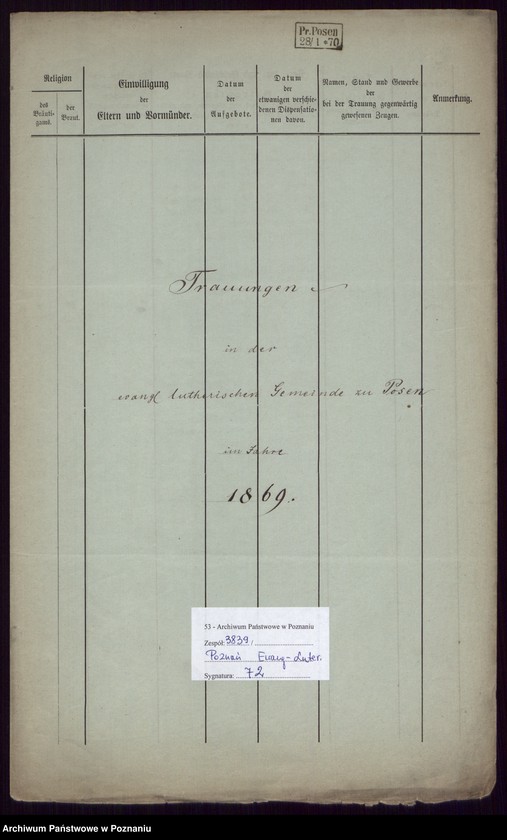 Pr. Posen
28/1 *70
Religion
des Bräuti-
gams.
der
Braut.
Einwilligung
der
Eltern und Vormünder.
Datum
der
Aufgebote.
Datum
der
etwanigen verschie-
denen Dispensatio-
nen davon.
Namen, Stand und Gewerbe
der
bei der Trauung gegenwärtig
gewesenen Zeugen.
Anmerkung.
Trauungen
in der
evangl lutherischen Gemeinde zu Posen
im Jahre
1869.
53 - Archiwum Państwowe w Poznaniu
Zespół: 3839 /
Poznań Ewang-Luter.
Sygnatura: 72
Archiwum Państwowe w Poznaniu